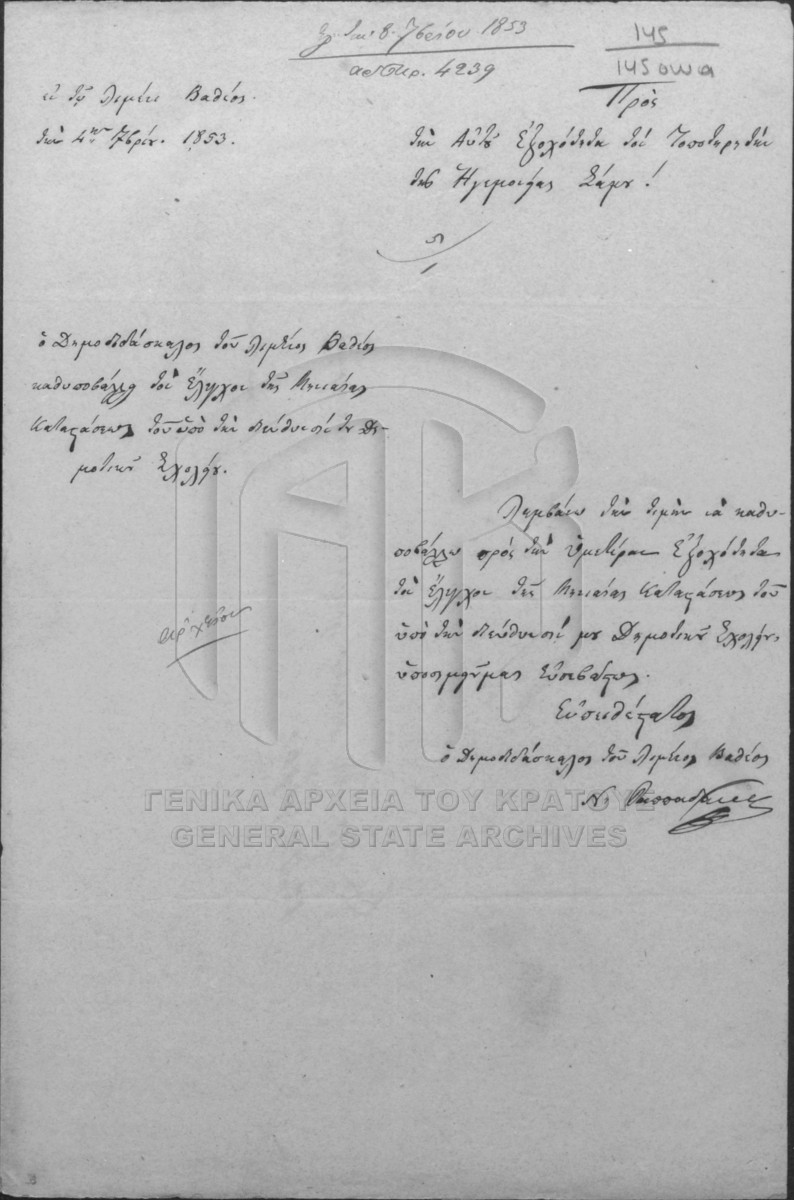 τὴν 8 7βρίου 1853
ἀρ. Πρ. 4239
145
145
ἐν τῷ Λιμένι Βαθέος.
τὴν 4ην 7βρίου. 1853.
Πρὸς
τὴν Αὐτοῦ Ἐξοχότητα τὸν Τοποτηρητὴν
τῆς Ἡγεμονίας Σάμου!
ὁ Δημοδιδάσκαλος τοῦ Λιμένος Βαθέος
καθυποβάλλει τὸν Ἔλεγχον τῆς Μηνιαίας
Καταστάσεως τοῦ ὑπὸ τὴν διεύθυνσίν του Δη-
μοτικοῦ Σχολείου.
Λαμβάνω τὴν τιμὴν νὰ καθυ-
ποβάλλω πρὸς τὴν Ὑμετέραν Ἐξοχότητα
τὸν Ἔλεγχον τῆς Μηνιαίας Καταστάσεως τοῦ
ὑπὸ τὴν διεύθυνσίν μου Δημοτικοῦ Σχολείου,
ὑποσημειοῦμαι Εὐσεβάστως.
Εὐπειθέστατος
ὁ Δημοδιδάσκαλος τοῦ Λιμένος Βαθέος
Ν.
ἀρχεῖον
ΓΕΝΙΚΑ ΑΡΧΕΙΑ ΤΟΥ ΚΡΑΤΟΥΣ
GENERAL STATE ARCHIVES